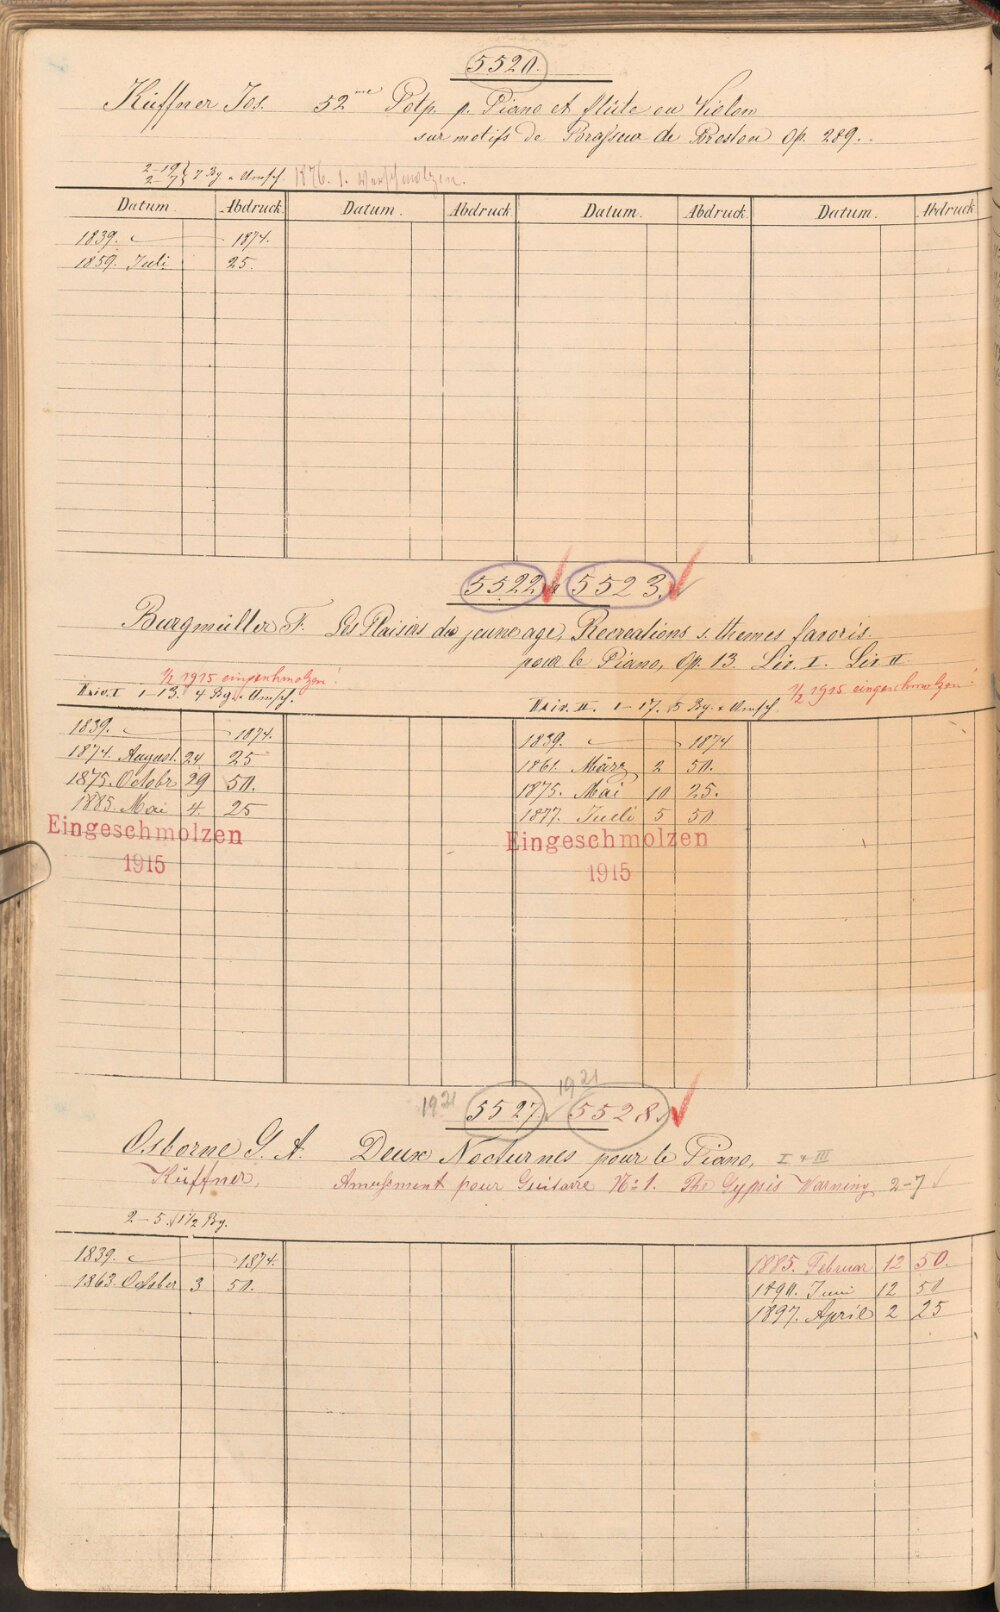 5520.
Küffner Jos. 52me Potp. p. Piano et flûte ou Violon
sur motifs de Brasseur de Preston Op. 289.
2-19
2-7 } 7 Bg. u. Umsch. 1876. 1. Verschmolzen.
Datum Abdruck. Datum. Abdruck Datum. Abdruck Datum. Abdruck
1839. 1874.
1859. Juli 25.
5522. 5523.
Burgmüller F. Les Plaisirs du jeune age, Recreations s. themes favoris.
pour le Piano, Op. 13. Liv. I. Liv. II
½ 1915 eingeschmolzen! ½ 1915 eingeschmolzen!
Liv. I 1-13. 4 Bg. u. Umsch. Liv. II. 1-17. 5 Bg. u. Umsch.
1839. 1874. 1839. 1874
1874. August. 24 25 1861. März 2 50.
1875. Octobr 29 50. 1875. Mai 10 25.
1885. Mai 4. 25 1877. Juli 5 50
Eingeschmolzen Eingeschmolzen
1915 1915
1921 5527. 1921 5528.
Osborne G. A. Deux Nocturnes pour le Piano, I & III
Küffner, Amusement pour Guitarre No 1. The Gypsis Warning 2-7
2-5. 1½ Bg.
1839. 1874. 1885. Februar 12 50.
1863. October 3 50. 1890. Juni 12 50
1897. April 2 25